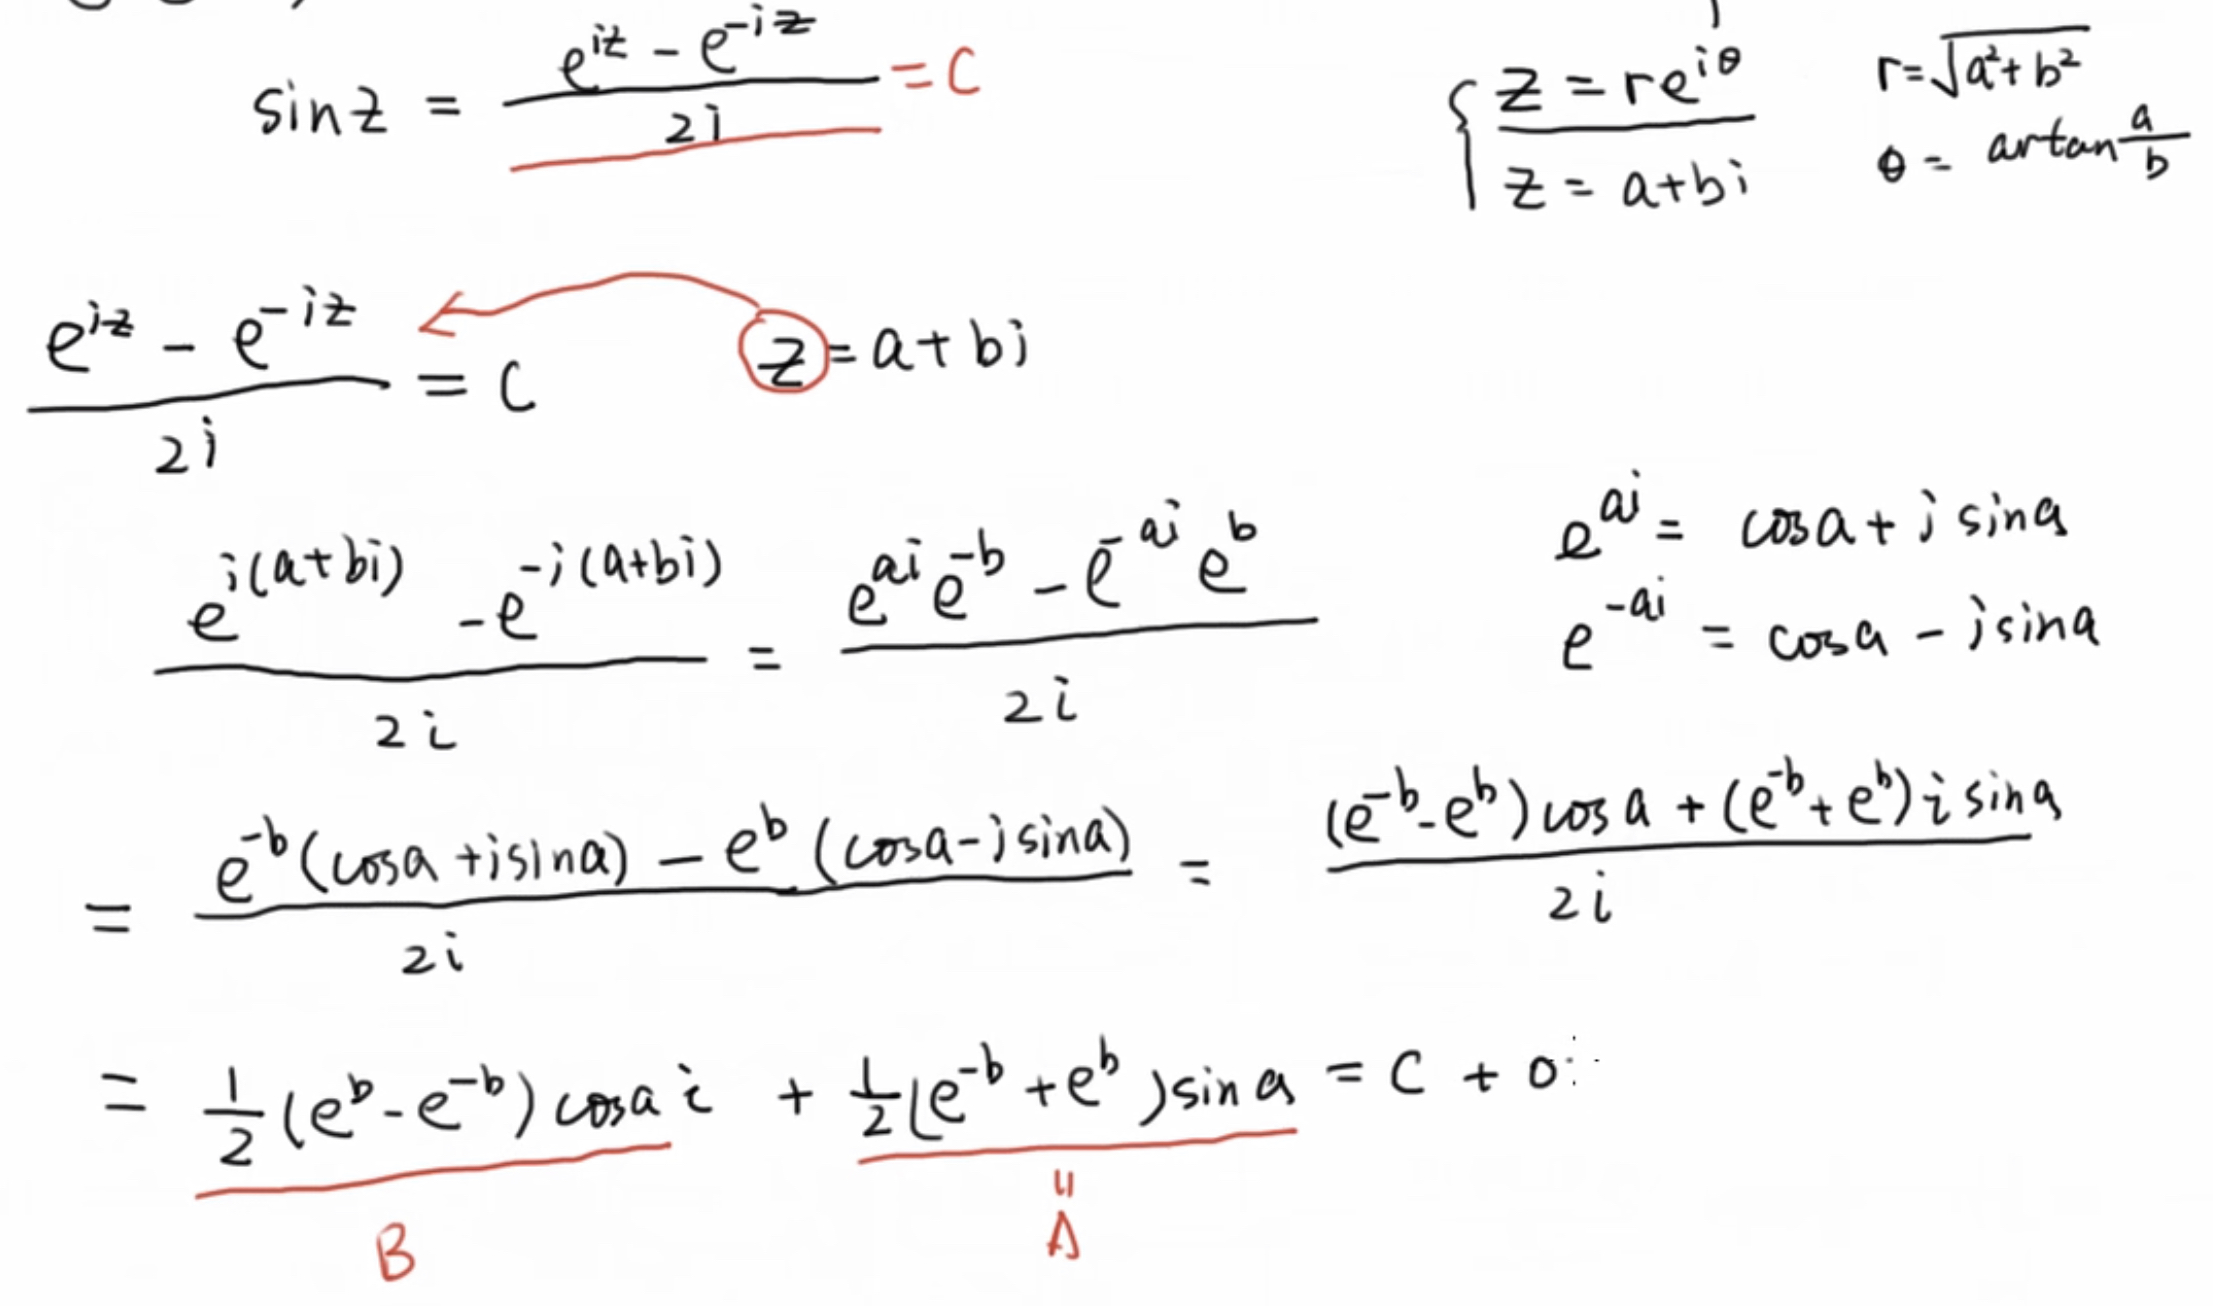 sinz = \frac{e^{iz} - e^{-iz}}{2i} = C
{ z = re^{iθ}   r = \sqrt{a^2 + b^2}
z = a+bi   θ = artan\frac{a}{b}
\frac{e^{iz} - e^{-iz}}{2i} = C   z = a + bi
\frac{e^{i(a+bi)} - e^{-i(a+bi)}}{2i} = \frac{e^{ai} e^{-b} - e^{-ai} e^{b}}{2i}
e^{ai} = cosa + i sina
e^{-ai} = cosa - i sina
= \frac{e^{-b}(cosa + isina) - e^{b}(cosa - isina)}{2i} = \frac{(e^{-b} - e^{b})cosa + (e^{-b} + e^{b})i sina}{2i}
= \frac{1}{2}(e^{b} - e^{-b})cosa i + \frac{1}{2}(e^{-b} + e^{b})sina = C + 0
B   = A